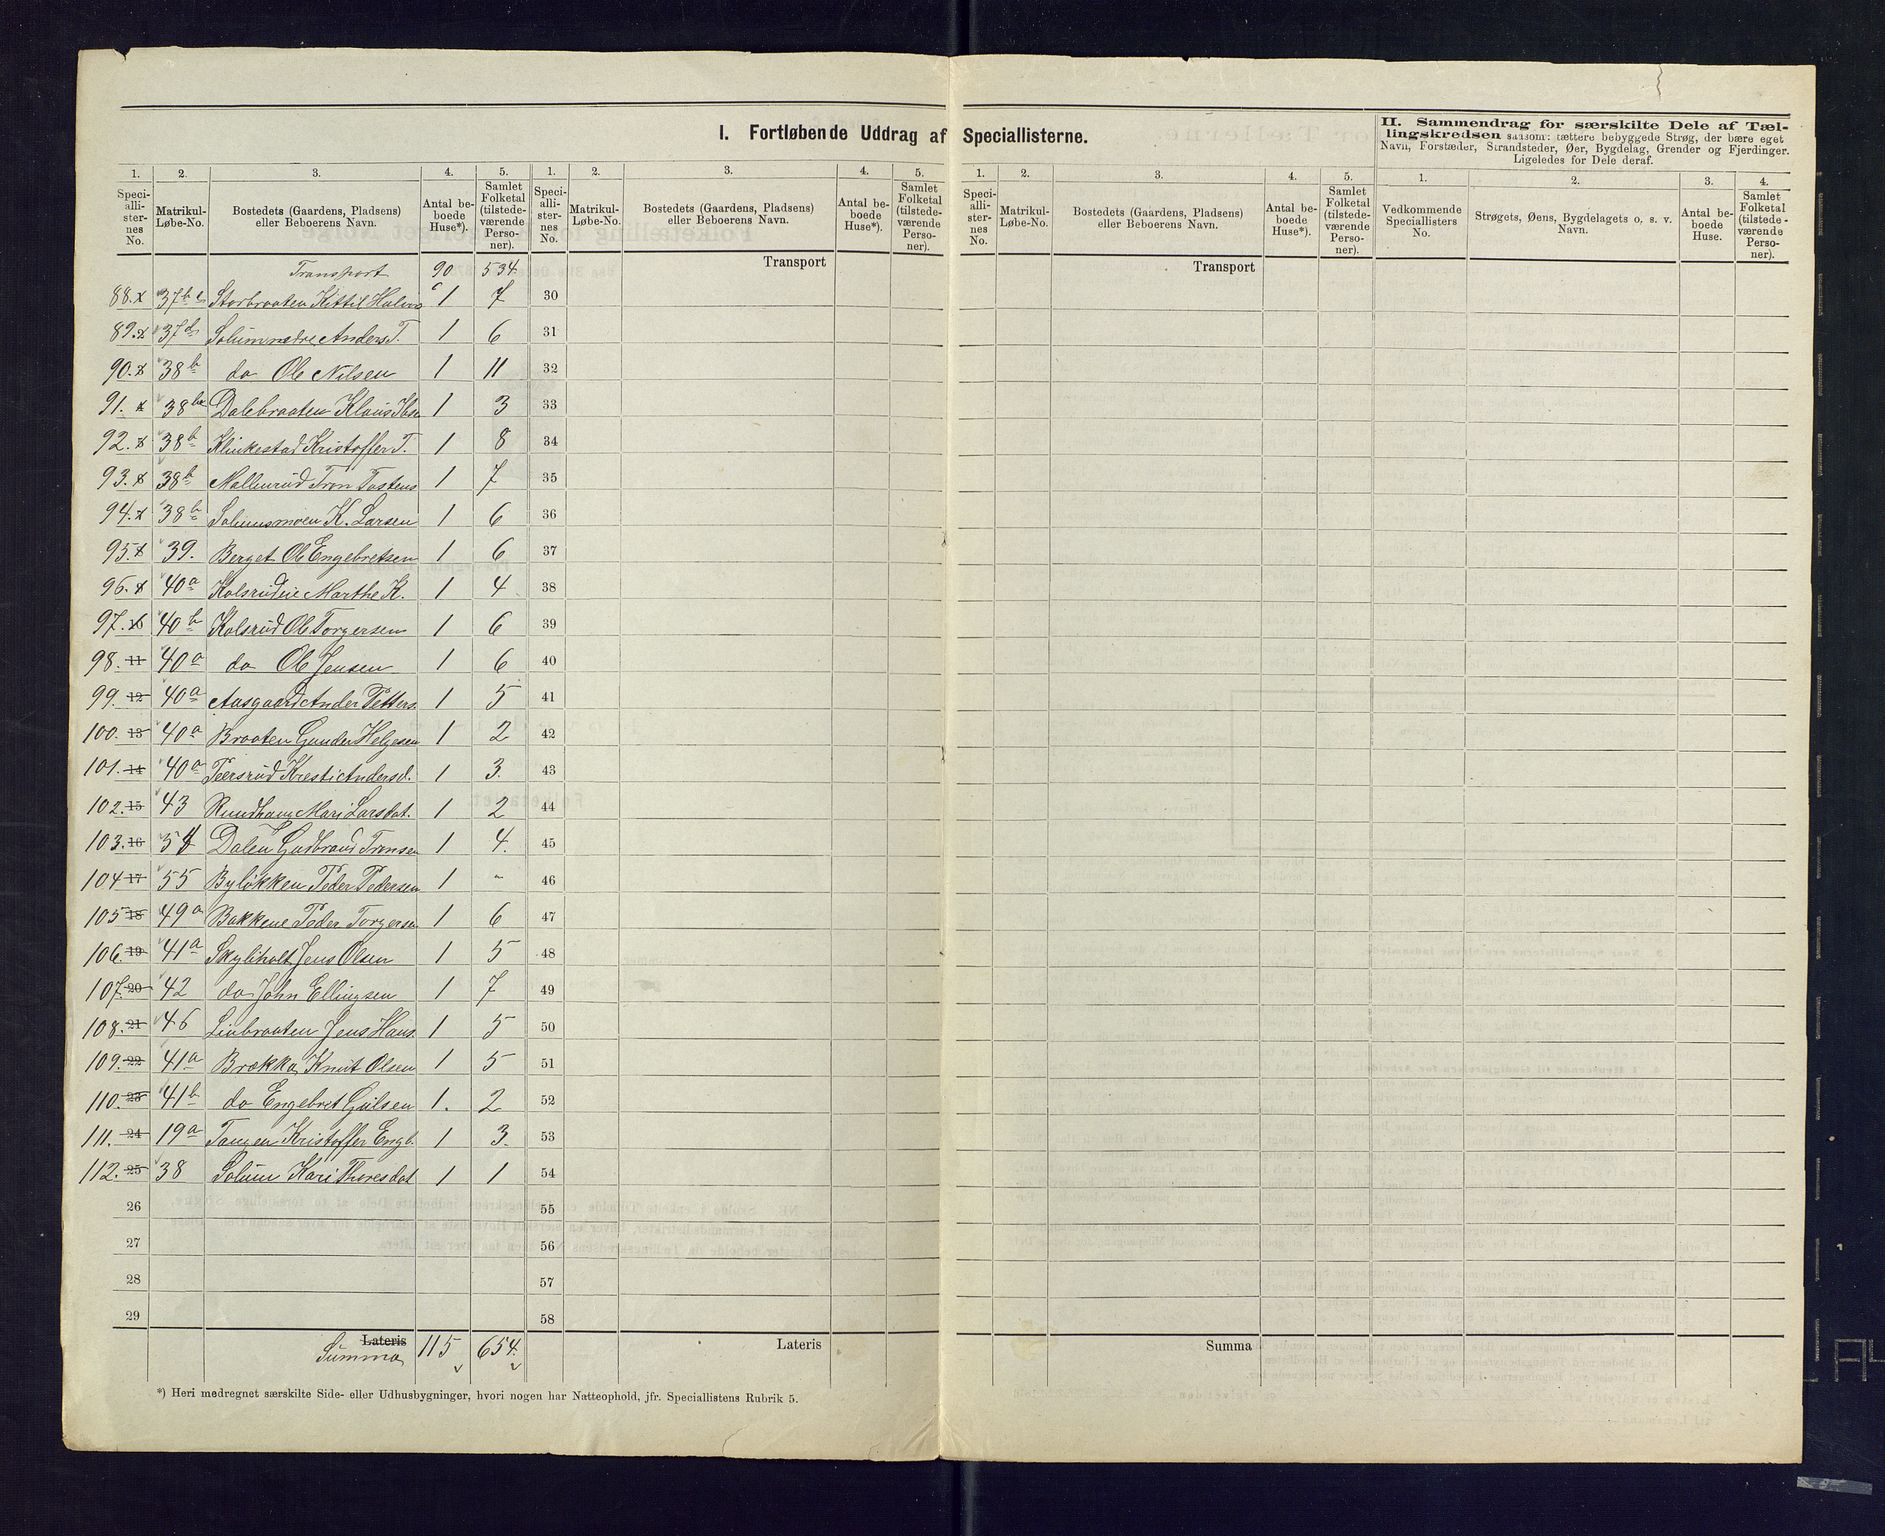 I. Fortløbende Uddrag af Speciallisterne.
II. Sammendrag for særskilte Dele af Tæl-
lingskredsen saasom: tættere bebyggede Strøg, der bære eget
Navn, Forstæder, Strandsteder, Øer, Bygdelag, Grender og Fjerdinger.
Ligeledes for Dele deraf.
1. 2. 3. 4. 5. 1. 2. 3. 4. 5. 1. 2. 3. 4. 5. 1. 2. 3. 4.
Speciallisternes No. Matrikul-Løbe-No. Bostedets (Gaardens, Pladsens) eller Beboerens Navn. Antal beboede Huse*). Samlet Folketal (tilstedeværende Personer).
Speciallisternes No. Matrikul-Løbe-No. Bostedets (Gaardens, Pladsens) eller Beboerens Navn. Antal beboede Huse*). Samlet Folketal (tilstedeværende Personer).
Speciallisternes No. Matrikul-Løbe-No. Bostedets (Gaardens, Pladsens) eller Beboerens Navn. Antal beboede Huse*). Samlet Folketal (tilstedeværende Personer).
Vedkommende Speciallisters No. Strøgets, Øens, Bygdelagets o. s. v. Navn. Antal beboede Huse. Samlet Folketal (tilstedeværende Personer).
Transport 90 534 Transport Transport
88. 37 Storbraaten Kittil Halvo 1 7 30
89. 37d Solumnedre Anders T. 1 6 31
90. 38b do Ole Nilsen 1 11 32
91. 38b Dalebraaten Klaus 1 3 33
92. 38b Klinkestad Kristoffer T. 1 8 34
93. 38b Mallerud Tron Tostens 1 7 35
94. 38b Solumsmoen K. Larsen 1 6 36
95. 39. Berget Ole Engebretsen 1 6 37
96. 40a Kolsrudeie Marthe K. 1 4 38
97. 10 40b Kolsrud Ole Torgersen 1 6 39
98. 11 40a do Ole Jensen 1 6 40
99. 12 40a Aasgaard Ander Petters. 1 5 41
100. 13 40a Braaten Gunder Helgesen 1 2 42
101. 14 40a Peersrud Kresti Andersd. 1 3. 43
102. 15 43 Rundhaug Mari Larsdat. 1 2 44
103. 16 54 Dalen Gudbrand Tronsen 1 4. 45
104 17 55 Byløkken Peder Pedersen 1 - 46
105 18 49a Bakkene Peder Torgersen 1 6 47
106. 19 41a Skyliholt Jens Olsen 1 5 48
107. 20 42 do John Ellingsen 1 7 49
108. 21 46 Linbraaten Jens Hans. 1 5 50
109. 22 41a Brækka Knut Olsen 1 5 51
110. 23 41b do Engebret Gulsen 1. 2 52
111. 24 19a Tangen Kristoffer Engb. 1 3. 53
112. 25 38 Solum Kari Thoresdat 1 1 54
26 55
27 56
28 57
29 58
Lateris 115 654. Lateris Summa
Summa
*) Heri medregnet særskilte Side- eller Udhusbygninger, hvori nogen har Natteophold, jfr. Speciallistens Rubrik 5.